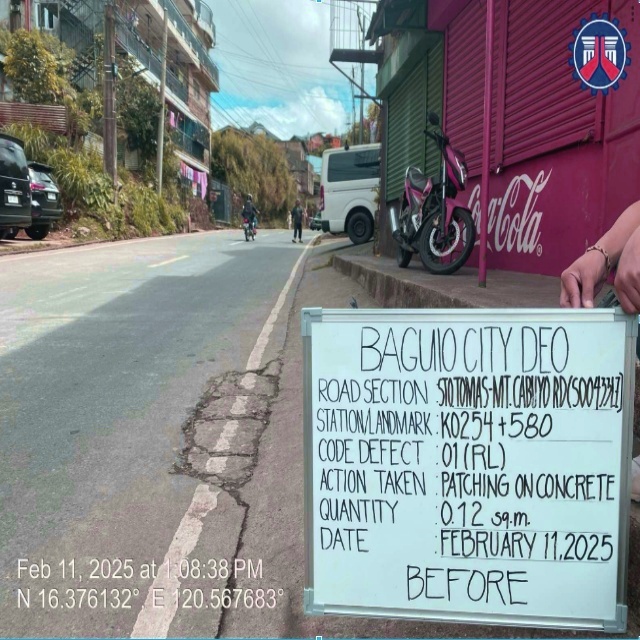 Coca-Cola
BAGUIO CITY DEO
ROAD SECTION : STO TOMAS-MT. CABUYO RD
STATION/LANDMARK : K0254+580
CODE DEFECT : 01 (RL)
ACTION TAKEN : PATCHING ON CONCRETE
QUANTITY : 0.12 sq.m.
DATE : FEBRUARY 11, 2025
BEFORE
Feb 11, 2025 at 1:08:38 PM
N 16.376132°, E 120.567683°